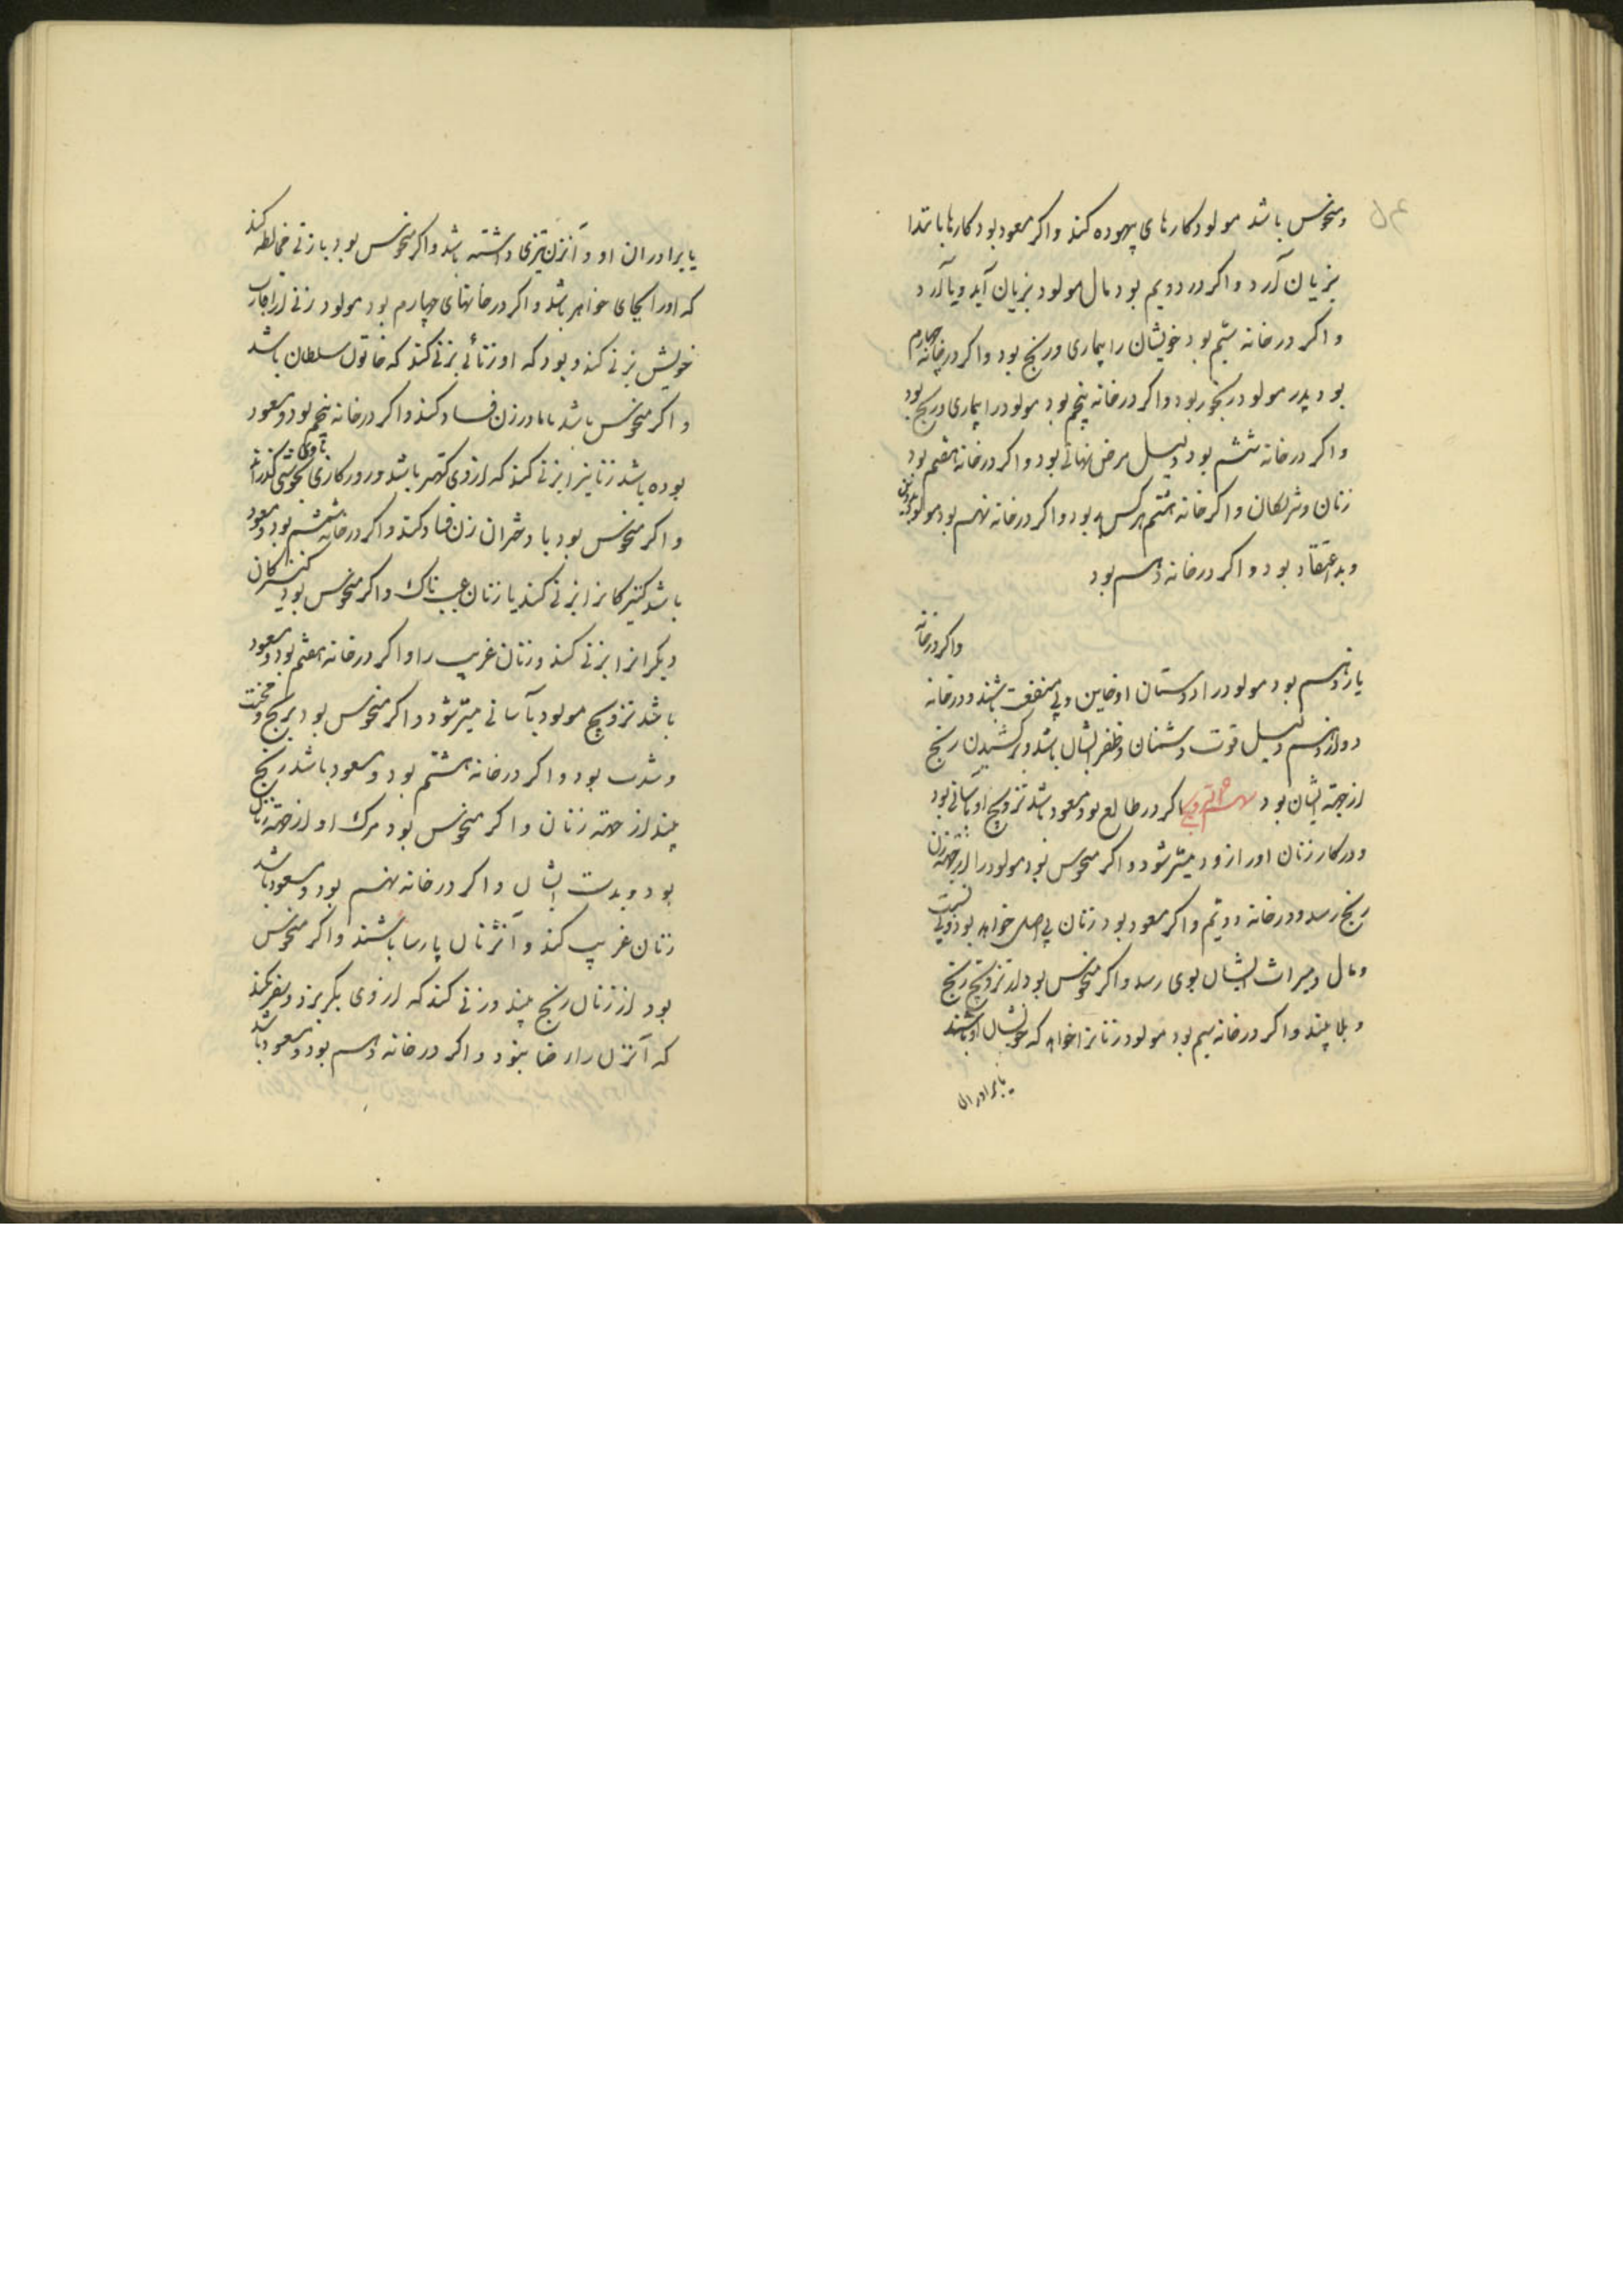 ومنحوس باشد مولود کارهای بیهوده کند واکر مسعود بود کارها بابتدا
بزیان آرد واکر در دویم بود مال مولود بزیان آید ویا آرد
واکر در خانه سیم بود خویشان را بیماری ورنج بود واکر در خانه چهارم
بود پدر مولود رنجور بود واکر در خانه پنجم بود مولود را بیماری ورنج بود
واکر در خانه ششم بود دلیل مرض نهانی بود واکر در خانه هفتم بود
زنان وشریکان واکر خانه هشتم بود واکر در خانه نهم بود مولود
وبد اعتقاد بود واکر در خانه دهم بود
واکر در خانه
یازدهم بود مولود را دوستان او خاین وبی منفعت باشند ودر خانه
دوازدهم دلیل قوت دشمنان وظفر ایشان باشد وبر کشیدن رنج
از جهة ایشان بود سهم التزویج اکر در طالع بود ومسعود باشد تزویج او بآسانی بود
ودر کار زنان او را زود میسر شود واکر منحوس بود مولود را از جهة زن
رنج رسد ودر خانه دویم واکر مسعود بود زنان بی اصل خواهد بود
ومال ومیراث ایشان بوی رسد واکر منحوس بود از تزویج رنج
وبلا بیند واکر در خانه سیم بود مولود زنانرا خواهد که خویشان او باشند
یا برادران
یا برادران او و آنزن تیزی داشته باشد واکر منحوس بود با زنی مخالطه کند
که او را بجای خواهر باشد واکر در خانهای چهارم بود مولود زنی از اقارب
خویش بزنی کند وبود که او زنانی بزنی کند که خاتون سلطان باشد
واکر منحوس باشد با مادر زن فساد کند واکر در خانه پنجم بود ومسعود
بوده باشد زنانیرا بزنی کند که از وی کهتر باشد وروزکاری بخوشی کذراند
با وی
واکر منحوس بود با دختران زن فساد کند واکر در خانه ششم بود ومسعود
باشد کنیزکانرا بزنی کند یا زنان عیب ناک واکر منحوس بود کنیزکان
دیکرانرا بزنی کند وزنان غریب را واکر در خانه هفتم بود ومسعود
باشد تزویج مولود بآسانی میسر شود واکر منحوس بود برنج ومحنت
وشدت بود واکر در خانه هشتم بود ومسعود باشد رنج
بیند از جهة زنان واکر منحوس بود مرک او از جهة زنان
بود وبدست ایشان واکر در خانه نهم بود ومسعود باشد
زنان غریب کند وآنزنان پارسا باشند واکر منحوس
بود از زنان رنج بیند وزنی کند که از وی بکریزد وسفر کند
که آنزن را رضا نبود واکر در خانه دهم بود ومسعود باشد